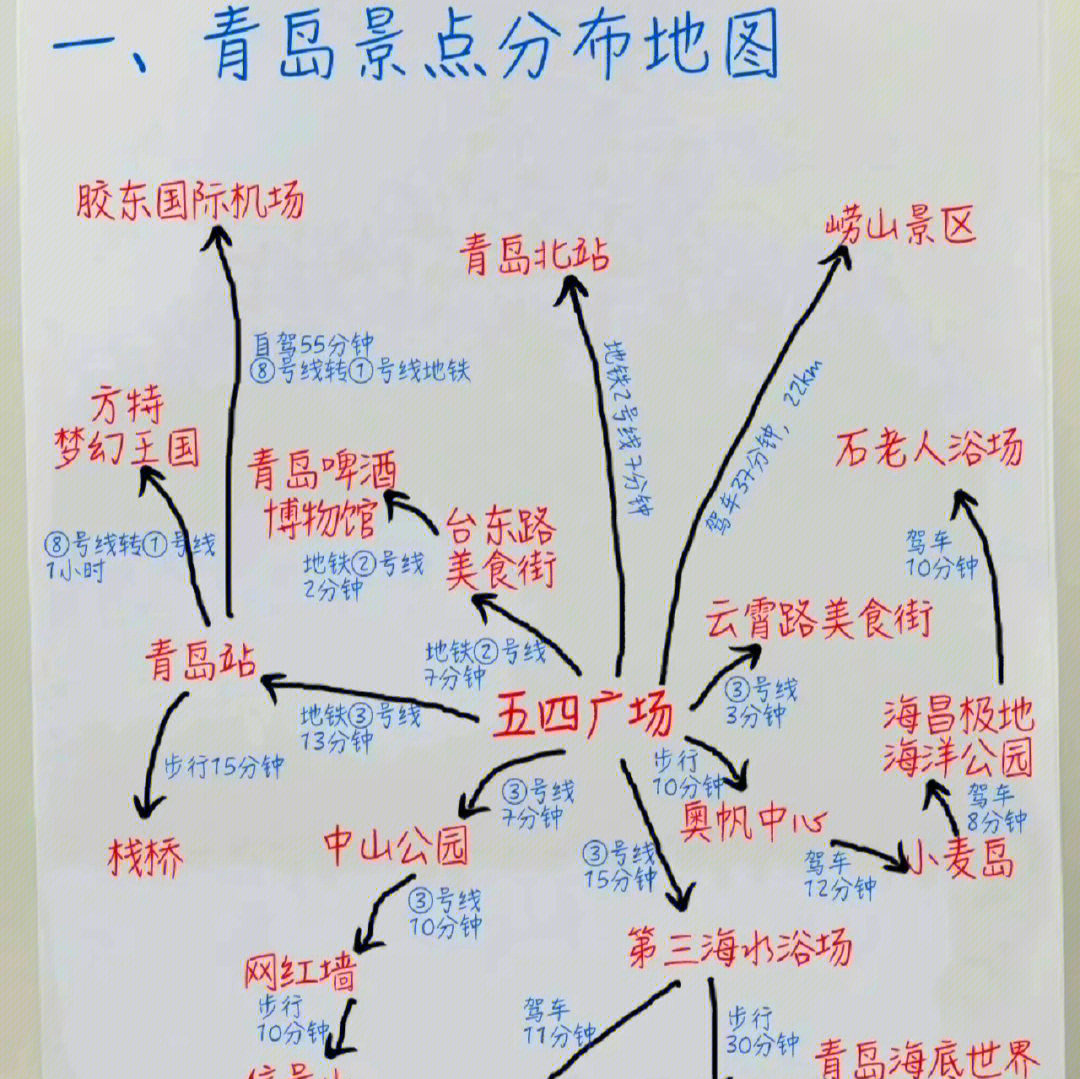 一、青岛景点分布地图
胶东国际机场
青岛北站
崂山景区
自驾55分钟
⑧号线转①号线地铁
地铁2号线7分钟
驾车37分钟，22km
方特
梦幻王国
青岛啤酒
博物馆
石老人浴场
台东路
美食街
⑧号线转①号线
1小时
地铁②号线
2分钟
驾车
10分钟
云霄路美食街
青岛站
地铁②号线
7分钟
③号线
3分钟
五四广场
地铁③号线
13分钟
海昌极地
海洋公园
步行15分钟
步行
10分钟
③号线
7分钟
驾车
8分钟
奥帆中心
栈桥
中山公园
③号线
15分钟
驾车
12分钟
小麦岛
③号线
10分钟
第三海水浴场
网红墙
步行
10分钟
驾车
11分钟
步行
30分钟
青岛海底世界